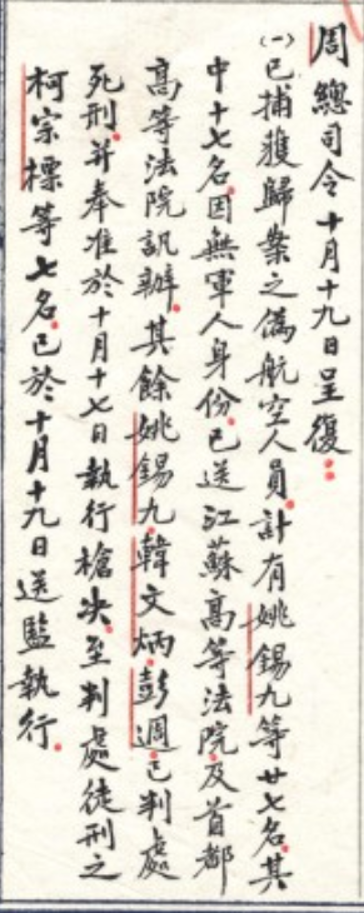 周總司令十月十九日呈復：
(一)已捕獲歸案之偽航空人員。計有姚錫九等廿七名。其
中十七名。因無軍人身份。已送江蘇高等法院。及首都
高等法院訊辦。其餘姚錫九。韓文炳。彭週。已判處
死刑。并奉准於十月十七日執行槍决。至判處徒刑之
柯宗標等七名。已於十月十九日送監執行。